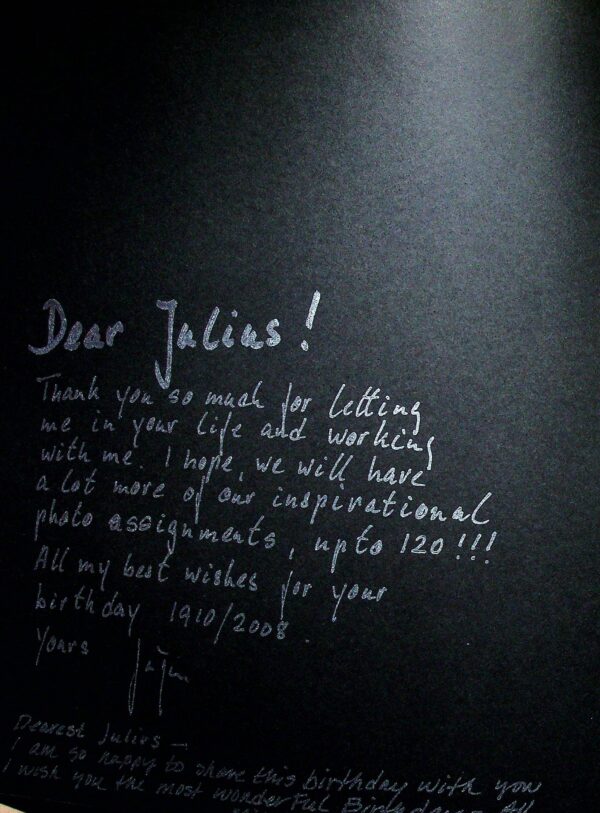 Dear Julius!
Thank you so much for letting
me in your life and working
with me. I hope, we will have
a lot more of our inspirational
photo assignments, up to 120!!!
All my best wishes for your
birthday 1910/2008.
Yours
Dearest Julius —
I am so happy to share this birthday with you
I wish you the most wonderful Birthday. All